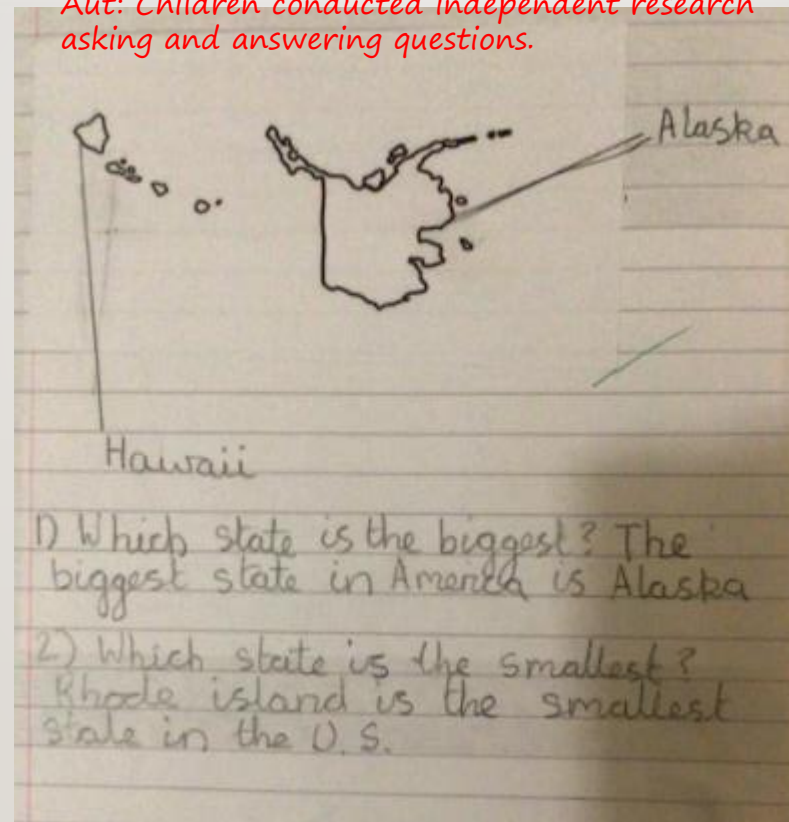 Aut: Children conducted independent research
asking and answering questions.
Alaska
Hawaii
1) Which state is the biggest? The
biggest state in America is Alaska
2) Which state is the smallest?
Rhode island is the smallest
state in the U.S.